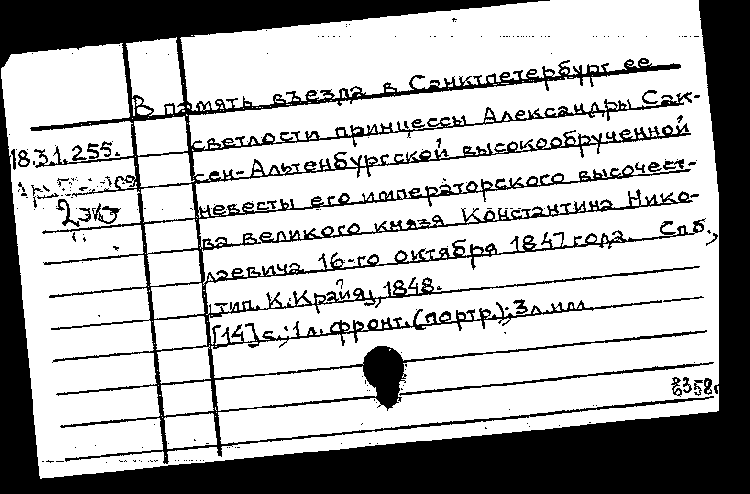 В память въезда в Санктпетербург ее
светлости принцессы Александры Сак-
18.31.255.
сен-Альтенбургской высокообрученной
невесты его императорского высочест-
2 экз
ва великого князя Константина Нико-
лаевича 16-го октября 1847 года. Спб.,
тип. К. Крайя, 1848.
[14] с.; 1 л. фронт. (портр.); 3 л. илл.